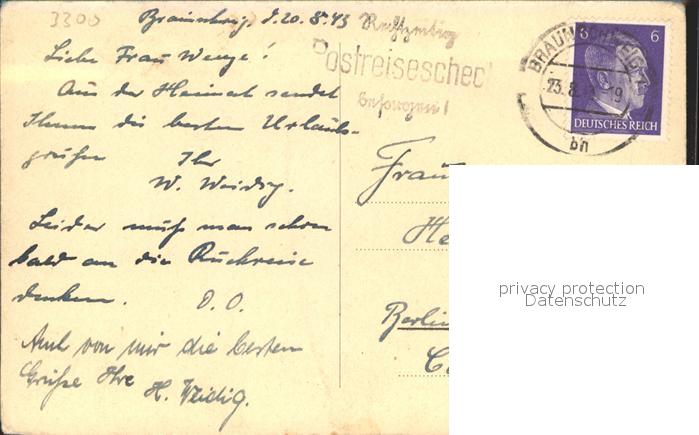 3300
Braunschweig, d. 20.8.43
Liebe Frau Wenze!
Aus der Heimat sendet
Ihnen die besten Urlaubs-
grüßen Ihr
W. Weidig.
Leider muß man schon
bald an die Rückreise
denken. D. O.
Auch von mir die besten
Grüße Ihre
H. Weidig.
Rechtzeitig
Postreisescheck
besorgen!
BRAUNSCHWEIG
23.8. -19
bn
6 6
DEUTSCHES REICH
Frau
He
Berlin
privacy protection
Datenschutz